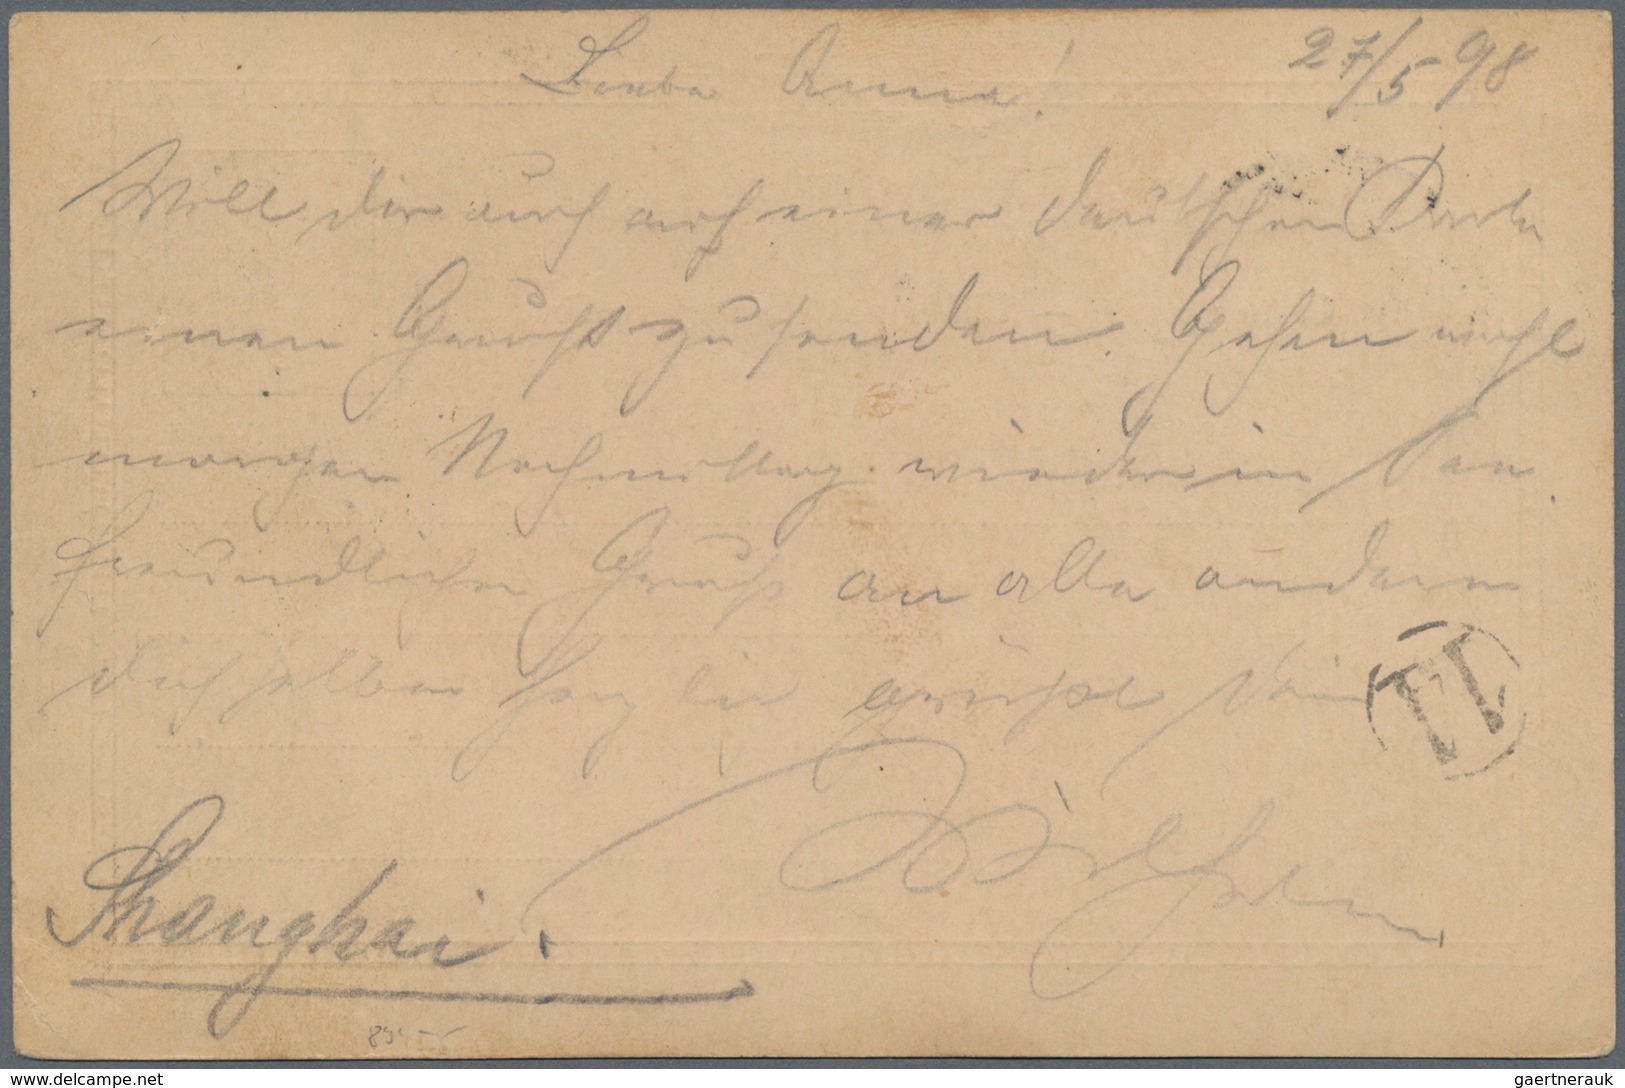 Liebe Anna! 27/5 98
Will dir auch auf einer deutschen Karte
einen Gruß zu senden. Gehen wohl
morgen Nachmittag wieder in See
freundlichen Gruß an alle andern
dich selber herzlich grüßt Dein
Wilhelm
Shanghai.
delcampe.net
gaertnerauk